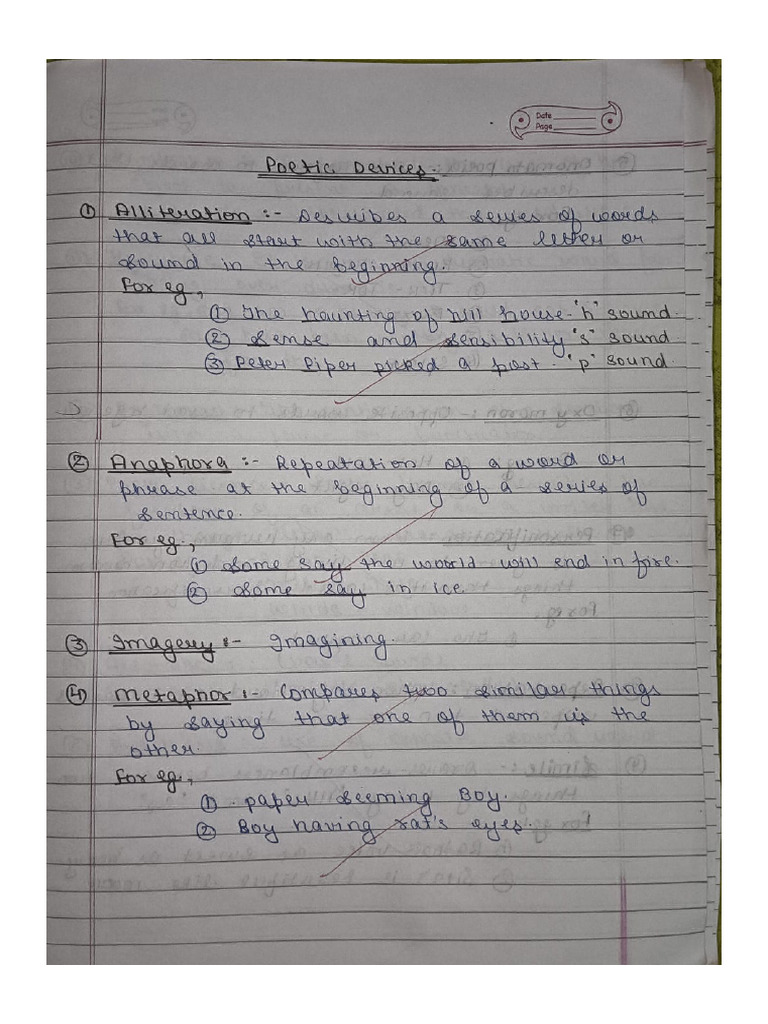 Date
Page
Poetic Devices.
① Alliteration :- Describes a series of words
that all start with the same letter or
sound in the beginning.
For eg,
① The haunting of hill house - 'h' sound.
② Sense and sensibility 's' sound.
③ Peter Piper picked a post - 'p' sound.
② Anaphora :- Repeatation of a word or
phrase at the beginning of a series of
sentence.
For eg.,
① Some say the world will end in fire.
② Some say in ice.
③ Imagery :- Imagining.
④ Metaphor :- Compares two similar things
by saying that one of them is the
other.
For eg.,
① paper seeming Boy.
② Boy having rat's eyes.